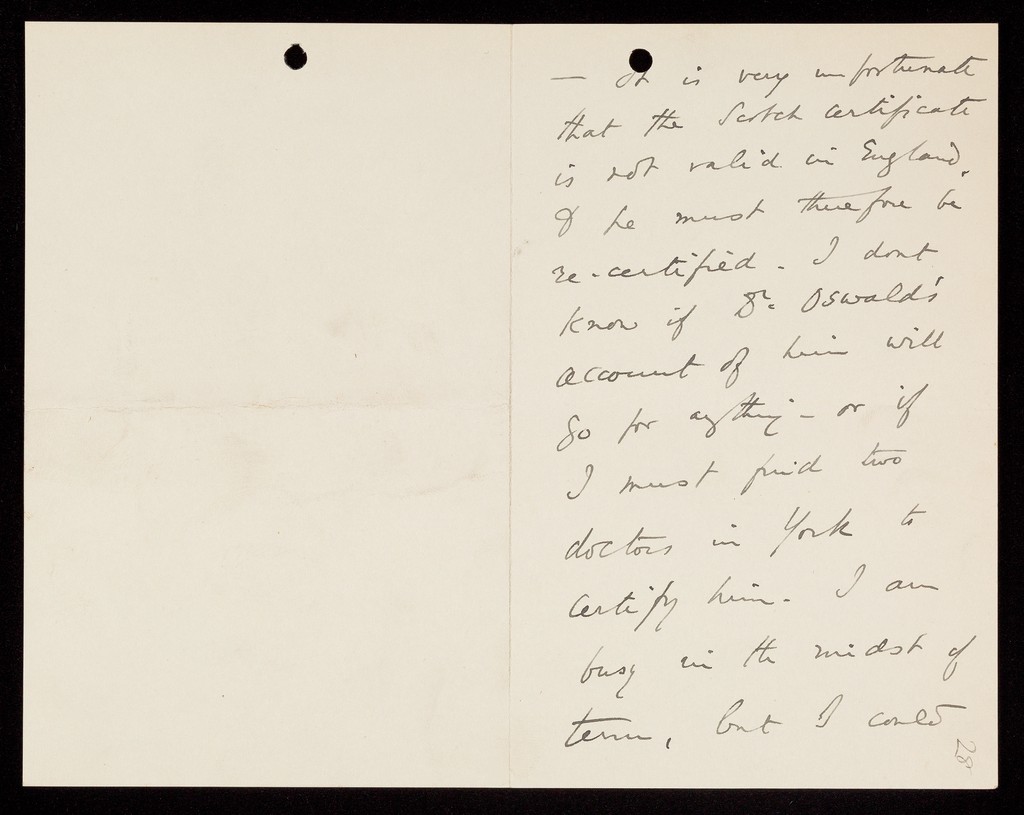 — It is very unfortunate
that the Scotch certificate
is not valid in England,
& he must therefore be
re-certified - I dont
know if Dr. Oswald's
account of him will
go for anything - or if
I must find two
doctors in York to
certify him - I am
busy in the midst of
term, but I could
28